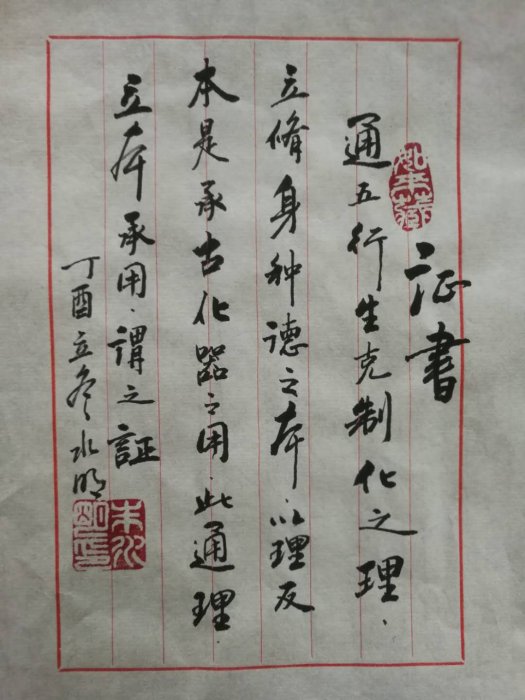 证書
通五行生克制化之理、
立脩身种德之夲.以理反
本是承古化器之用.此通理.
立夲承用.謂之証
丁酉立冬水明